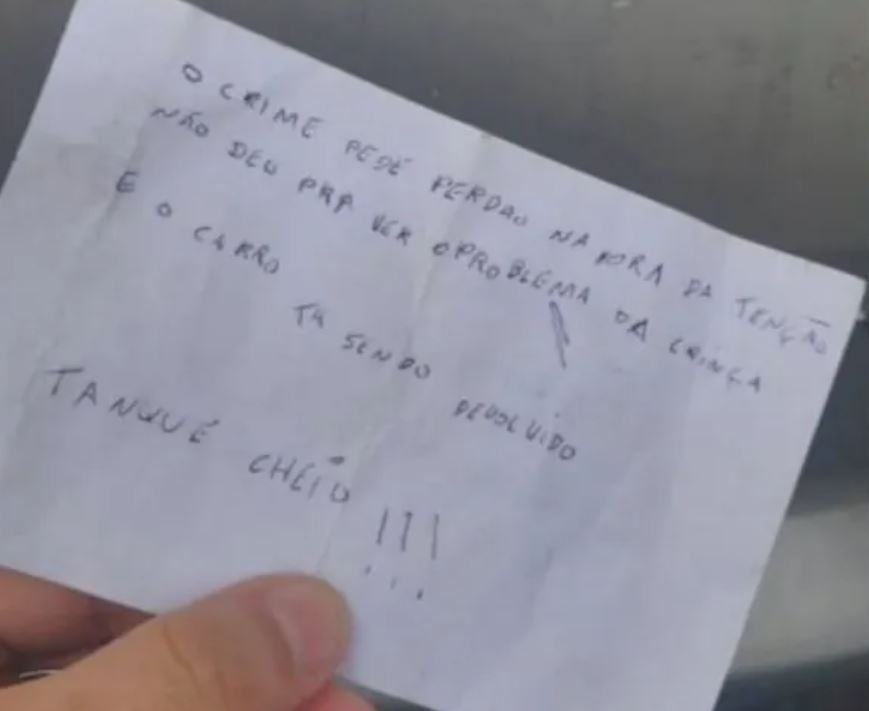 O CRIME PEDE PERDAO NA HORA DA TENÇÃO
NÃO DEU PRA VER O PROBLEMA DA CRINÇA
E O CARRO TA SENDO DEVOLVIDO
TANQUE CHEIO !!!